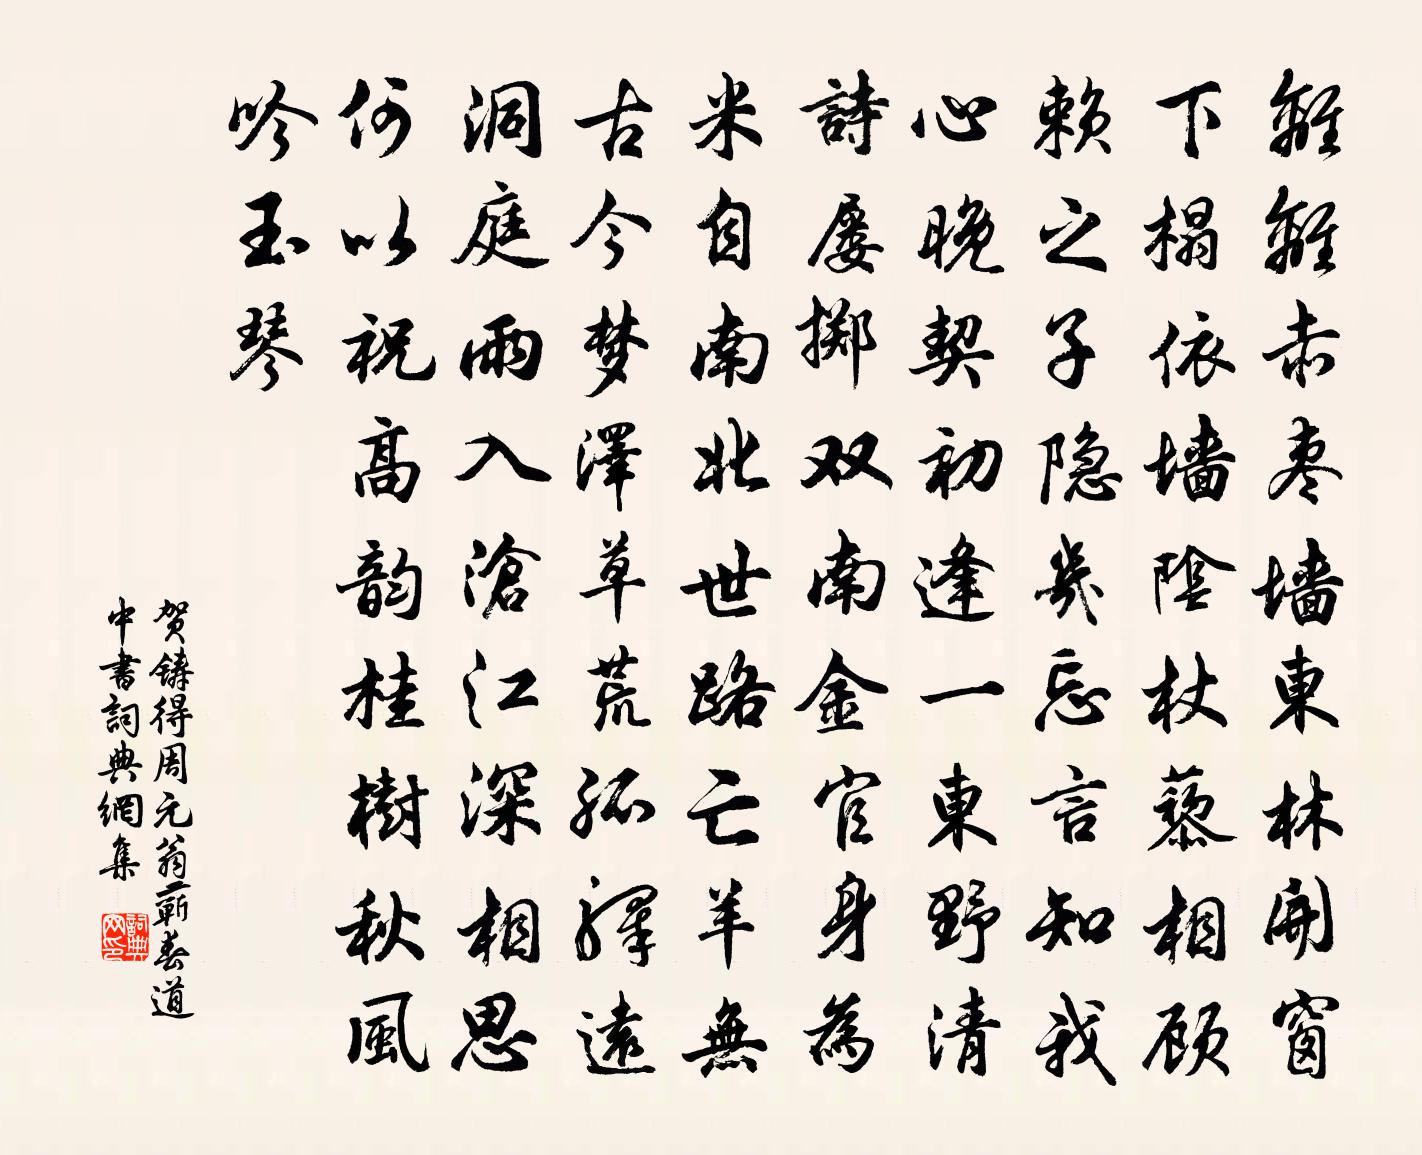 離離赤枣墙東林開窗
下榻依墙陰杖藜相顾
赖之子隐几忘言知我
心晚契初逢一東野清
詩屡掷双南金官身為
米自南北世路亡羊無
古今梦澤草荒孤驛遠
洞庭雨入滄江深相思
何以祝高韵桂樹秋風
吟玉琴
贺铸得周元翁蕲春道
中書詞典網集